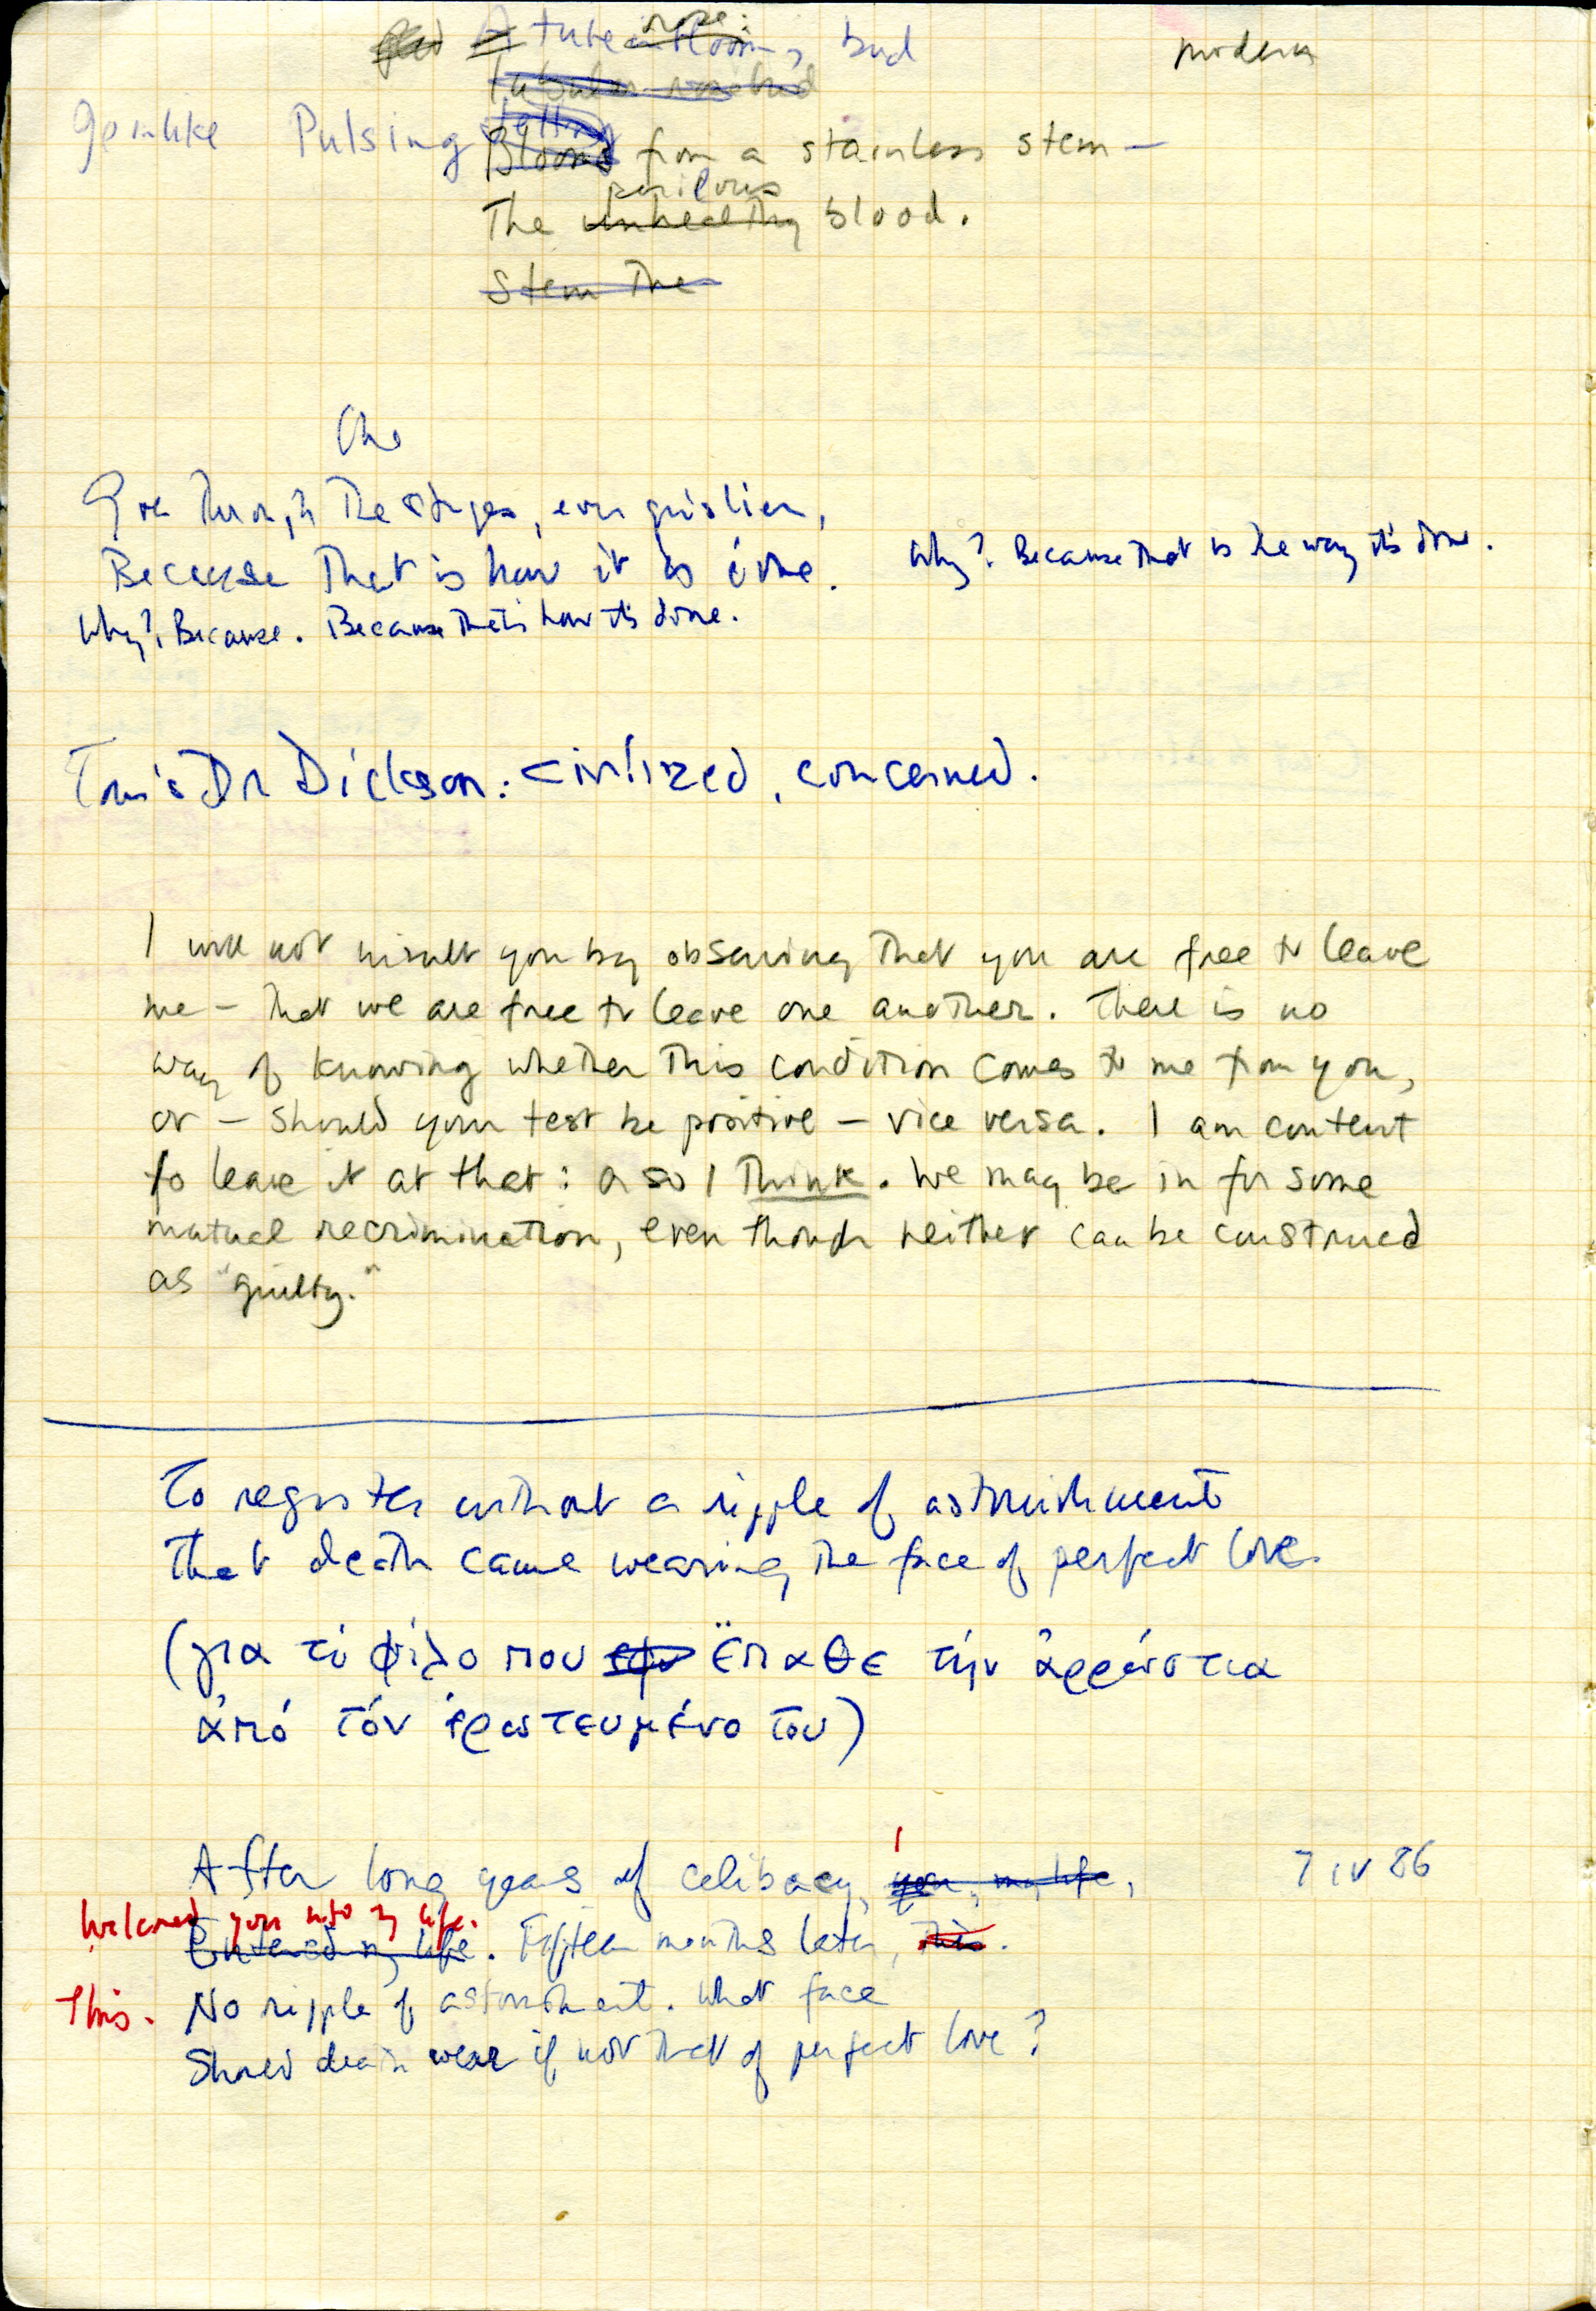 A tube rose: in bloom, bud modern
Tubular rosebud
gemlike Pulsing Jetting
Blooms from a stainless stem —
perilous
The unhealthy blood.
Stem the
One
Goes through the stages, even grislier,
Because that is how it is done. Why? Because that is the way it's done.
Why? Because. Because that is how it's done.
Tom's Dr Dickson: civilized, concerned.
I will not insult you by observing that you are free to leave
me — that we are free to leave one another. There is no
way of knowing whether this condition comes to me from you,
or — should your test be positive — vice versa. I am content
to leave it at that: or so I think. We may be in for some
mutual recrimination, even though neither can be construed
as "guilty."
To register without a ripple of astonishment
That death came wearing the face of perfect love.
(για τό φίλο που ἔπαθε τήν ἀρρώστια
ἀπό τόν ἐρωτευμένο του)
I
After long years of celibacy, you, my life, 7 iv 86
Welcomed you into my life.
Entered my life. Fifteen months later, this.
This. No ripple of astonishment. What face
Should death wear if not that of perfect love?